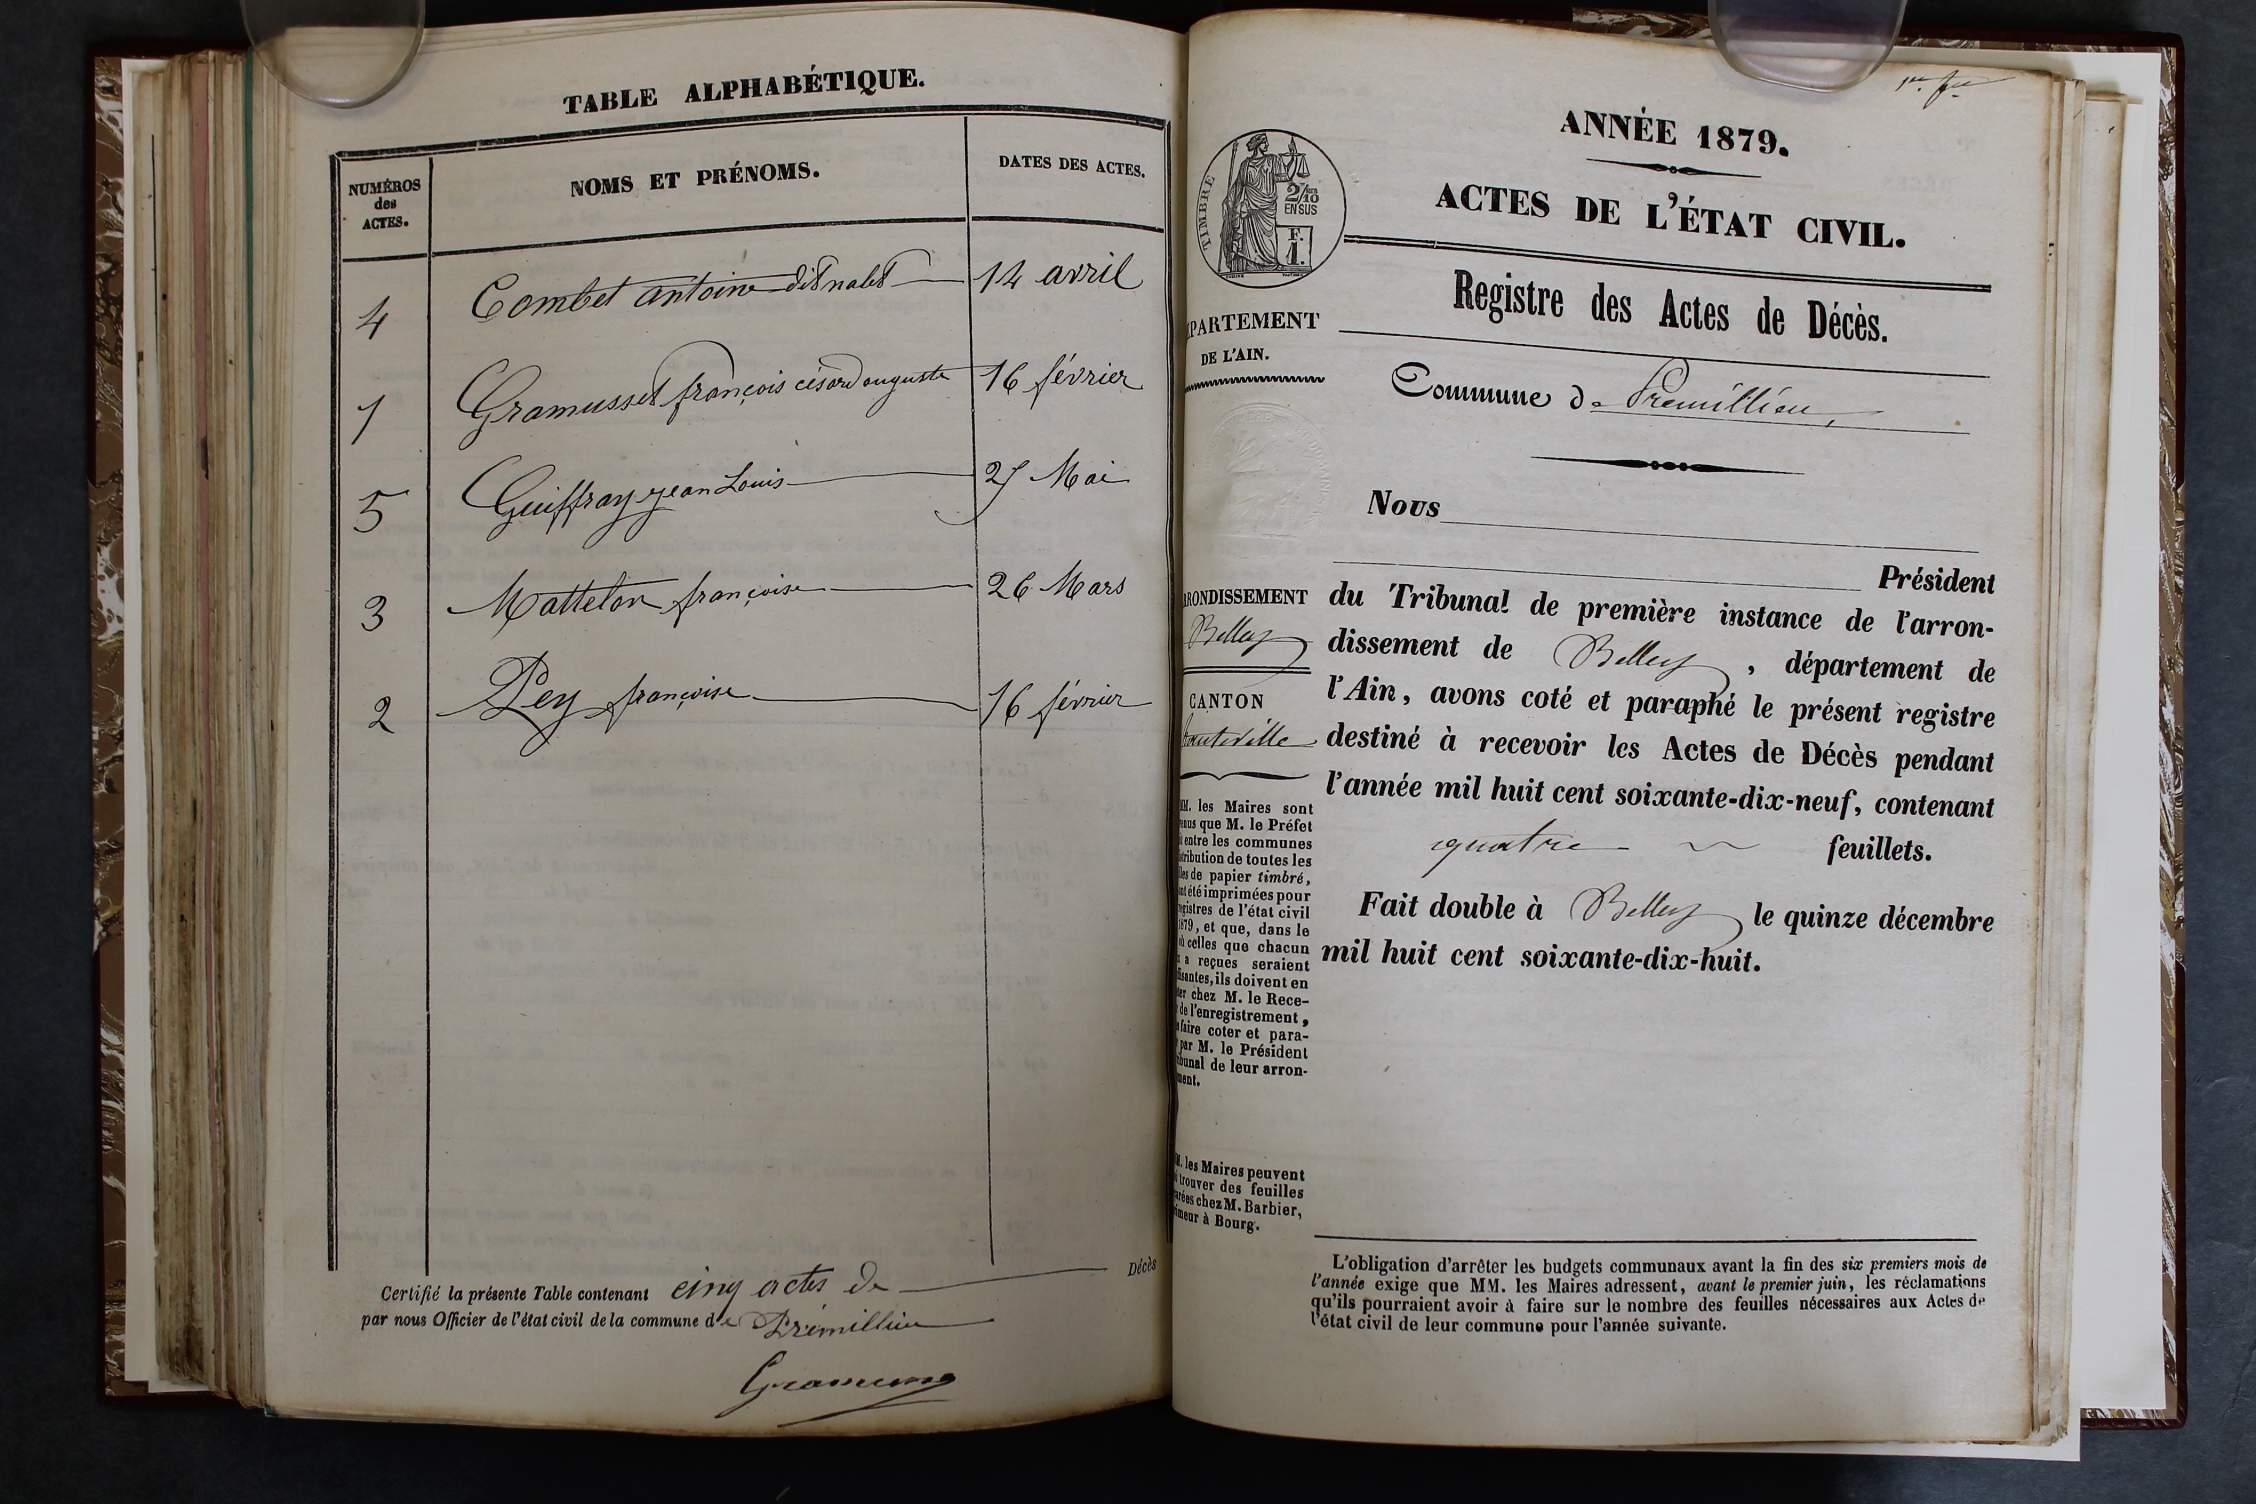 TABLE ALPHABÉTIQUE.
NUMÉROS
des
ACTES.
NOMS ET PRÉNOMS.
DATES DES ACTES.
4 Combet antoine dit nabet 14 avril
1 Gramusset françois césard auguste 16 février
5 Guiffray jean Louis 27 Mai
3 Mattelon françoise 26 Mars
2 Pey françoise 16 février
Certifié la présente Table contenant cinq actes de Décès
par nous Officier de l'état civil de la commune de Prémillieu
1er
ANNÉE 1879.
ACTES DE L'ÉTAT CIVIL.
TIMBRE
2/10
EN SUS
F.
1.
Registre des Actes de Décès.
PARTEMENT
DE L'AIN.
Commune de Premillieu,
Nous
Président
du Tribunal de première instance de l'arron-
dissement de Belley, département de
l'Ain, avons coté et paraphé le présent registre
destiné à recevoir les Actes de Décès pendant
l'année mil huit cent soixante-dix-neuf, contenant
quatre feuillets.
Fait double à Belley le quinze décembre
mil huit cent soixante-dix-huit.
RONDISSEMENT
Belley
CANTON
hauteville
MM. les Maires sont
enus que M. le Préfet
entre les communes
tribution de toutes les
les de papier timbré,
nt été imprimées pour
egistres de l'état civil
1879, et que, dans le
où celles que chacun
a reçues seraient
fisantes, ils doivent en
ter chez M. le Rece-
de l'enregistrement,
faire coter et para-
par M. le Président
ibunal de leur arron-
ment.
M. les Maires peuvent
trouver des feuilles
arées chez M. Barbier,
imeur à Bourg.
L'obligation d'arrêter les budgets communaux avant la fin des six premiers mois de
l'année exige que MM. les Maires adressent, avant le premier juin, les réclamations
qu'ils pourraient avoir à faire sur le nombre des feuilles nécessaires aux Actes de
l'état civil de leur commune pour l'année suivante.